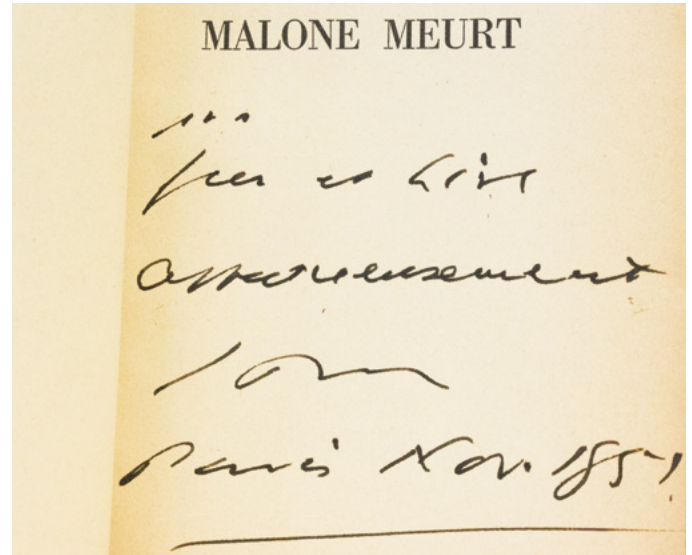 MALONE MEURT
...
Geer et Lisl
affectueusement
Sam
Paris Nov. 1951